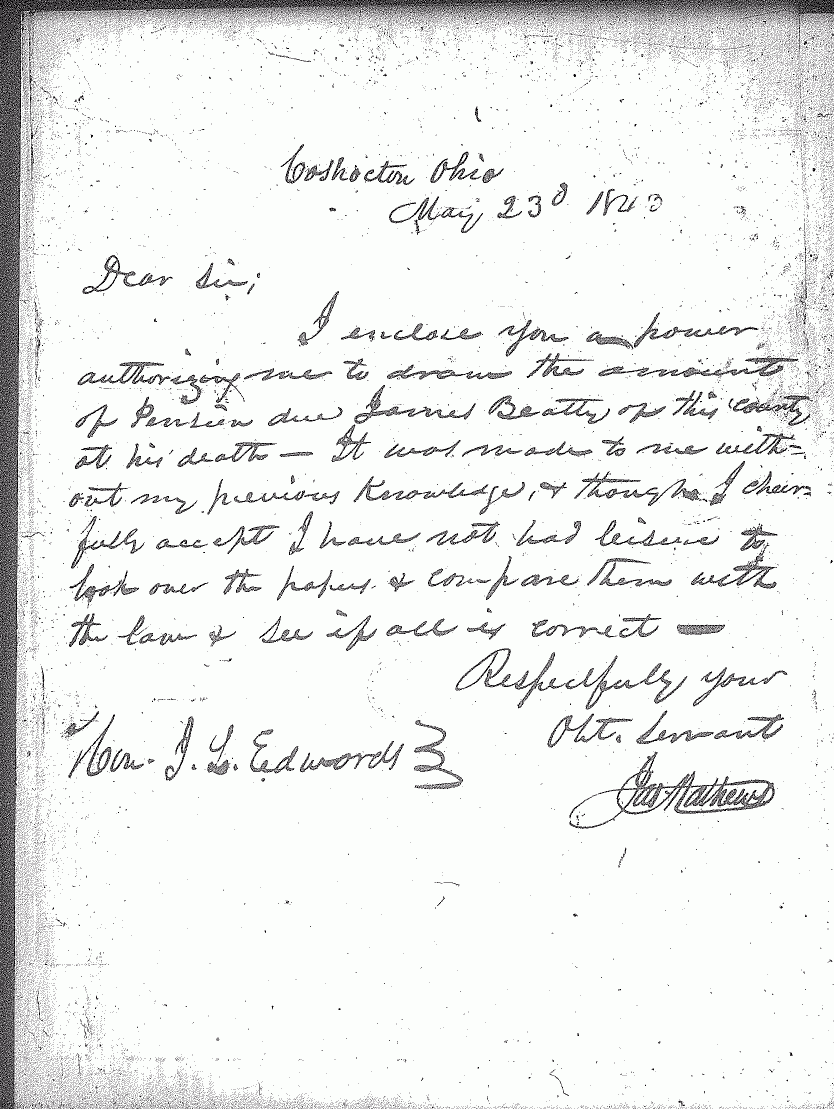 Coshocton Ohio
May 23d 1843
Dear Sir;
I enclose you a power
authorizing me to draw the amount
of Pension due James Beatty of this county
at his death — It was made to me with=
out my previous Knowledge, & though I cheer=
fully accept I have not had leisure to
look over the papers & compare them with
the law & see if all is correct —
Respectfully your
Obt. Servant
Hon. J. L. Edwards
Jas Mathews